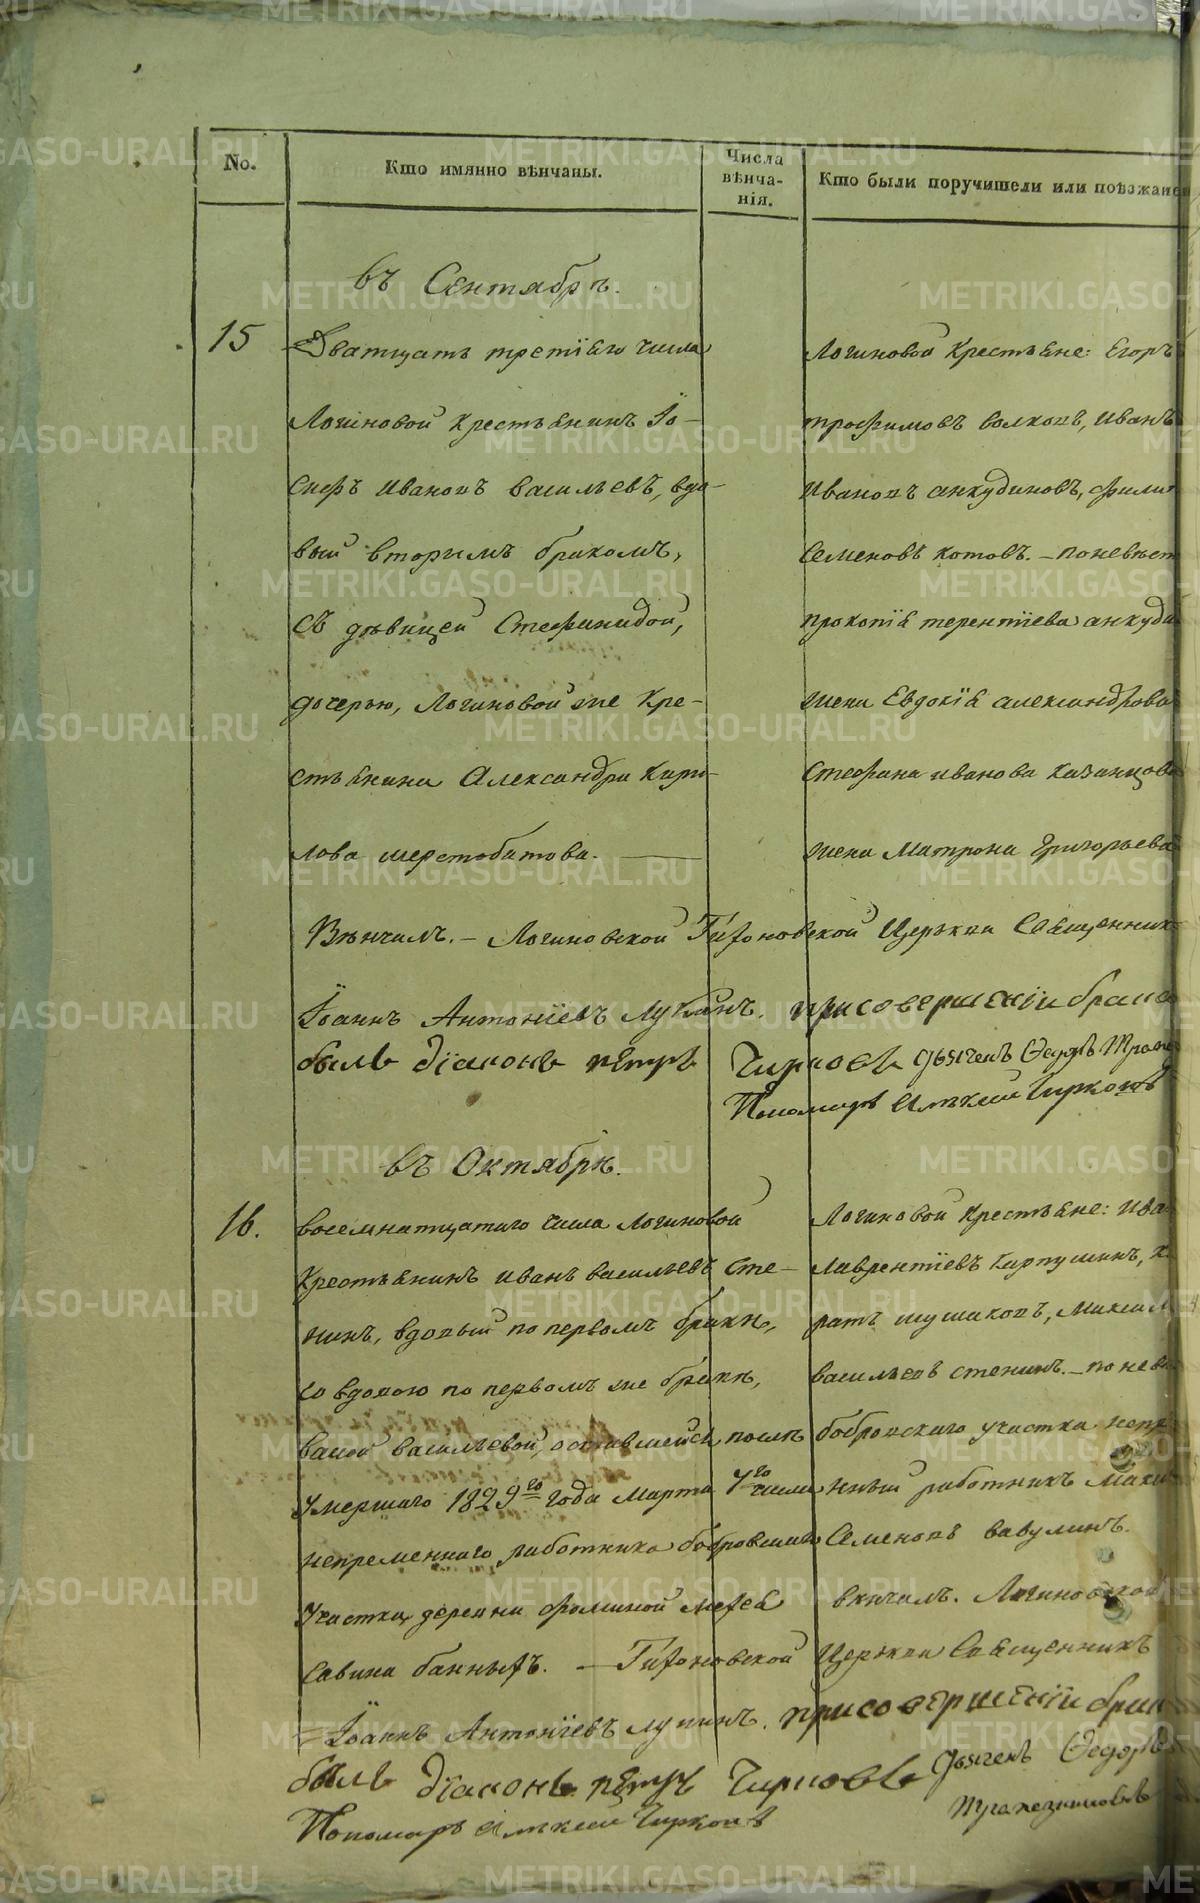 No.
Кто имянно вѣнчаны.
Числа
вѣнча-
нія.
Кто были поручители или поѣзжане
въ Сентябрѣ.
15
Дватцать третїяго числа
Логиновой крестьянинъ Їо-
сифъ Ивановъ васильевъ, вдо-
вый вторымъ бракомъ,
съ дѣвицей Стефанидой,
дочерью, Логиновой же кре-
стьянина Александра Кири-
лова шерстобитова.
Логиновой крестьяне: Егоръ
трофимовъ волковъ, Иванъ
Ивановъ анкудиновъ, фили
Семеновъ котовъ. – поневѣст
прокопїя терентїева анкуди
жена Евдокїя александрова
Стефана иванова казанцова
жена Матрона Григорьева
Вѣнчалъ. – Логиновской Тихоновской Церькви Священник
Їоаннъ Антонїевъ Лупинъ. присовершенїи брака
былъ дїаконъ петръ Чирковъ дьячекъ Ѳедоръ
Пономарь Алѣксей Чирковъ
въ Октябрѣ.
16.
восемнатцатаго числа Логиновой
крестьянинъ иванъ васильевъ Сте-
нинъ, вдовый по первомъ бракѣ,
со вдовою по первомъ же бракѣ,
васой васильевой, оставшейся послѣ
умершаго 1829го года Марта 7го числа
непременнаго работника бобровскаго
участка, деревни фоминой
савина банныхъ.
Логиновой крестьяне: Ива
Лаврентїевъ карпушинъ, к
ратъ шушаковъ, Максим
васильевъ стенинъ. – по нев
бобровскаго участка непр
нный работникъ Макси
Семеновъ вавулинъ.
вѣнчалъ. Логиновской
Тихоновской Церькви Священникъ
Їоаннъ Антонїевъ лупинъ. присовершенїи брак
былъ дїаконъ петръ Чирковъ дьячекъ Ѳедоръ
Трапезниковъ
Пономарь Алѣксей Чирковъ
METRIKI.GASO-URAL.RU